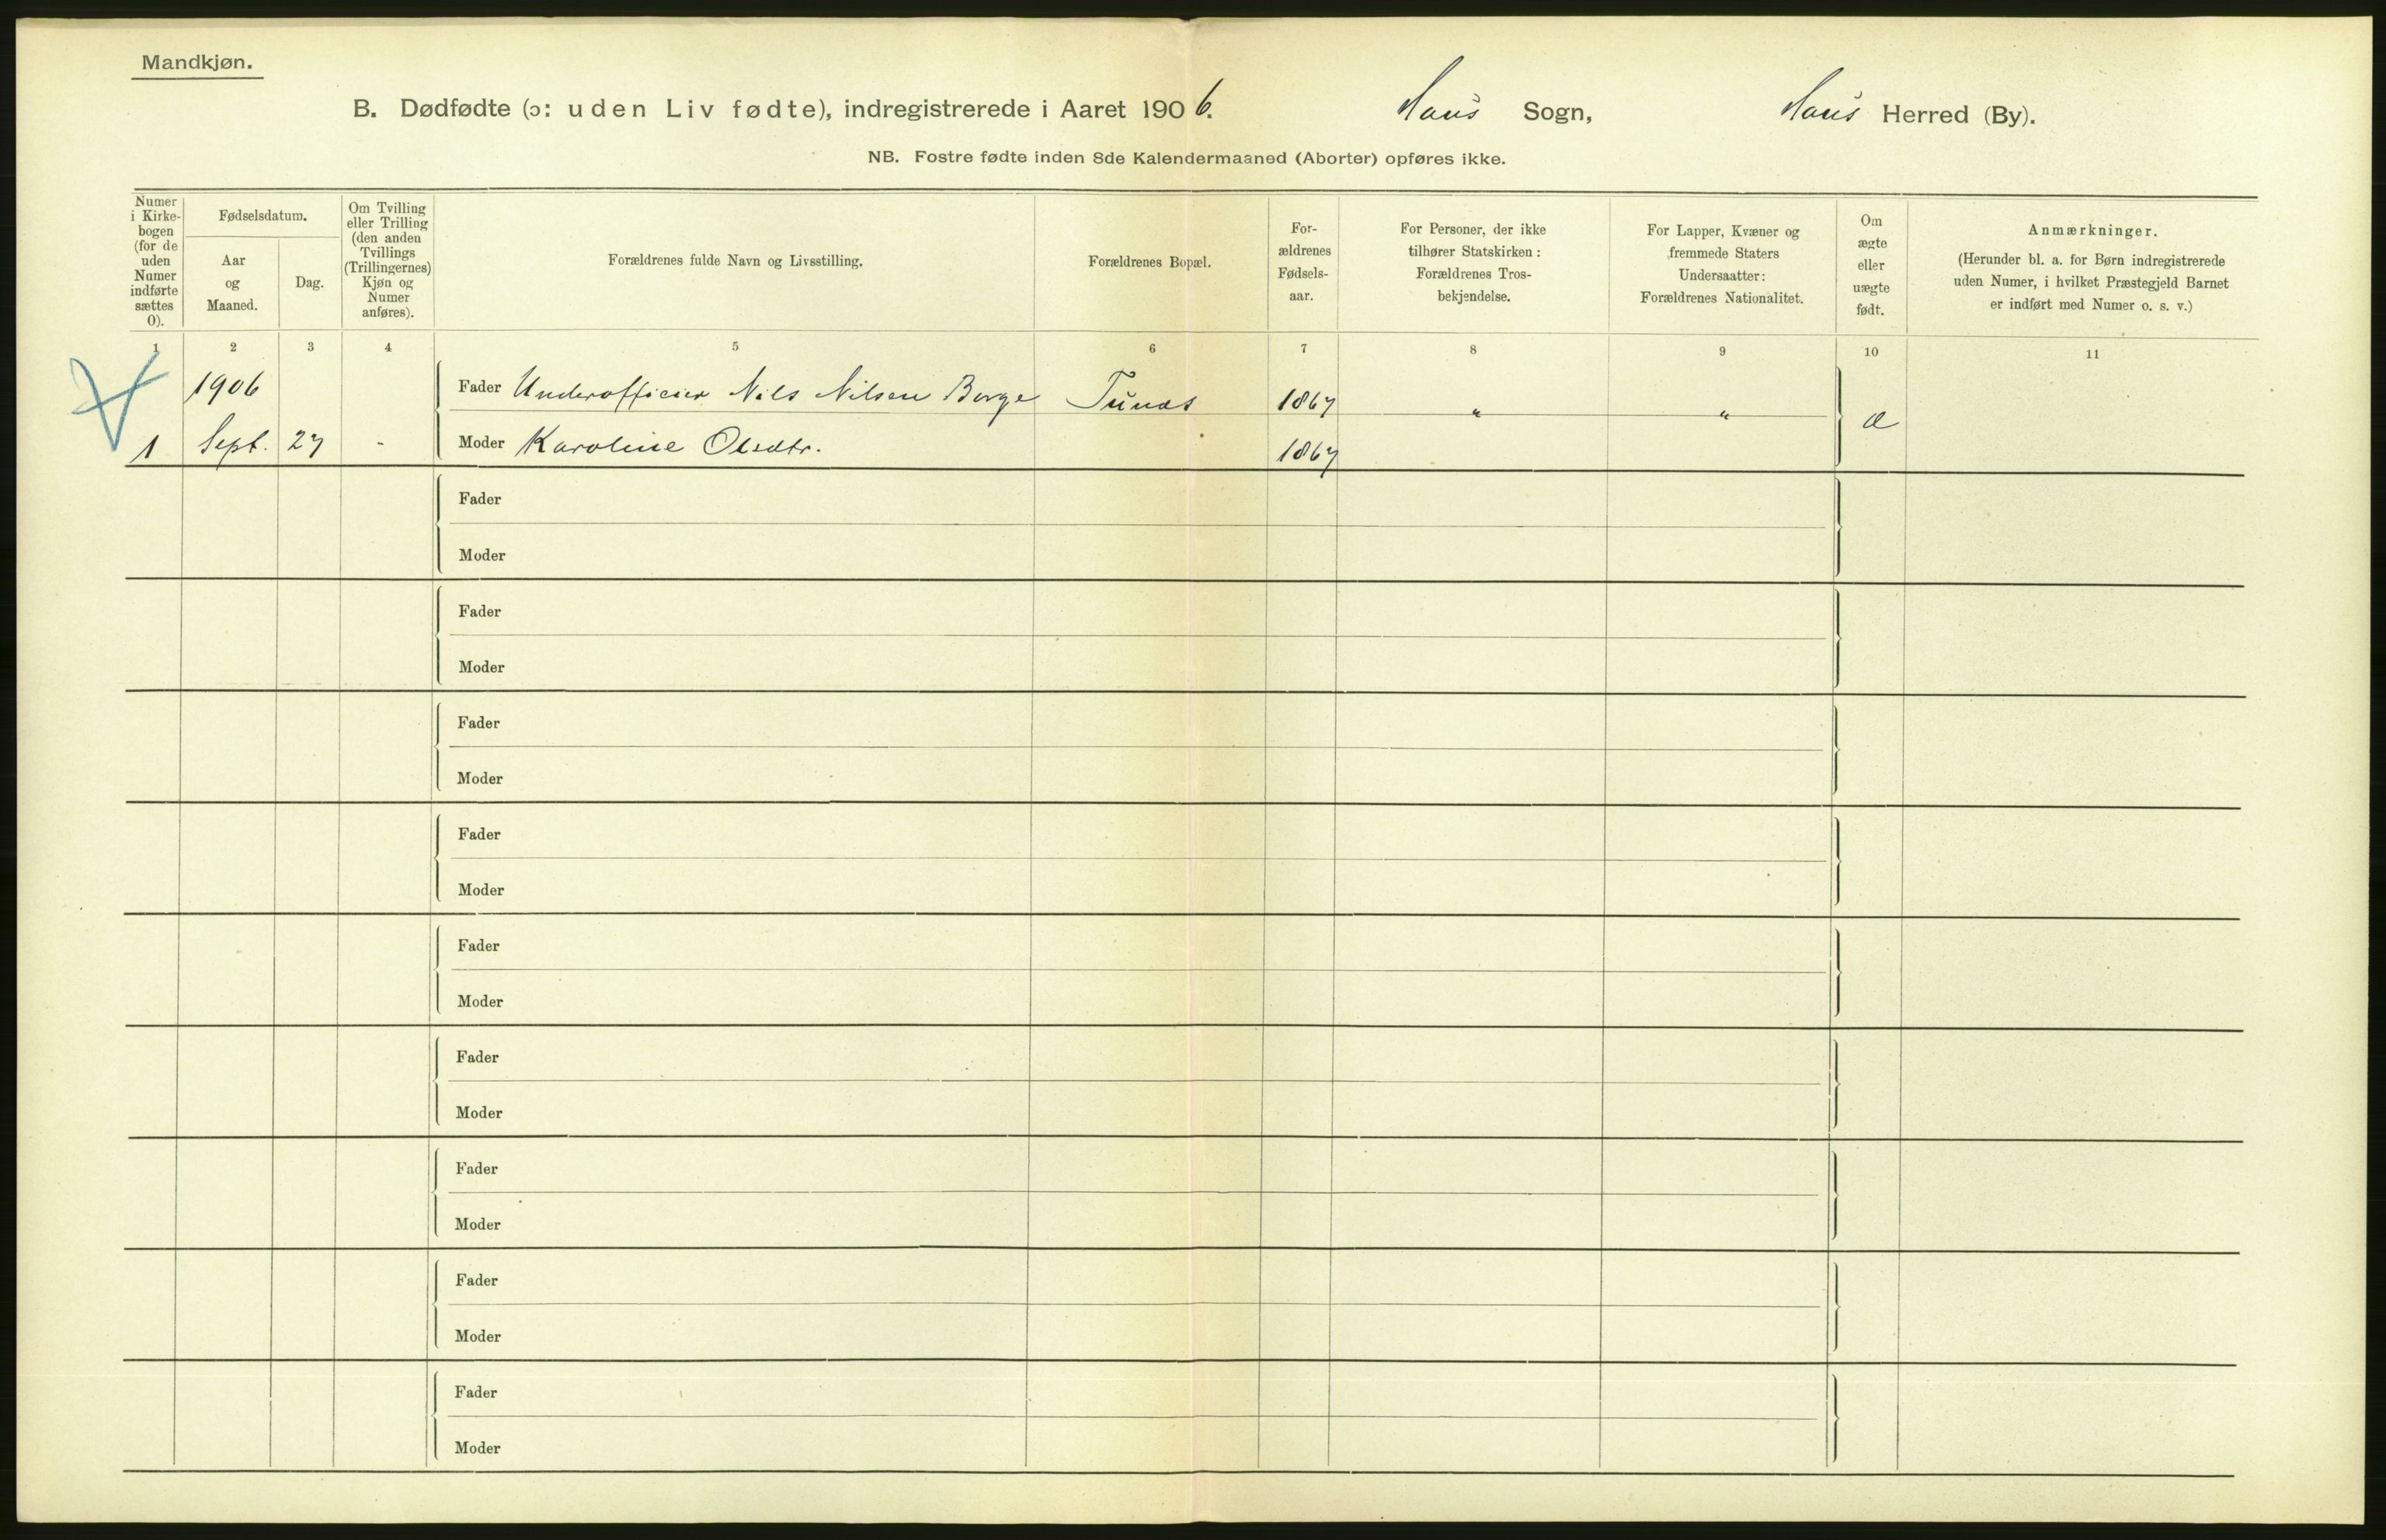 Mandkjøn.
B. Dødfødte (ɔ: uden Liv fødte), indregistrerede i Aaret 1906. Haus Sogn, Haus Herred (By).
NB. Fostre fødte inden 8de Kalendermaaned (Aborter) opføres ikke.
Numer
i Kirke-
bogen
(for de
uden
Numer
indførte
sættes
0).
Fødselsdatum.
Aar
og
Maaned.
Dag.
Om Tvilling
eller Trilling
(den anden
Tvillings
(Trillingernes)
Kjøn og
Numer
anføres).
Forældrenes fulde Navn og Livsstilling.
Forældrenes Bopæl.
For-
ældrenes
Fødsels-
aar.
For Personer, der ikke
tilhører Statskirken:
Forældrenes Tros-
bekjendelse.
For Lapper, Kvæner og
fremmede Staters
Undersaatter:
Forældrenes Nationalitet.
Om
ægte
eller
uægte
født.
Anmærkninger.
(Herunder bl. a. for Børn indregistrerede
uden Numer, i hvilket Præstegjeld Barnet
er indført med Numer o. s. v.)
1 2 3 4 5 6 7 8 9 10 11
1906 Fader Underofficier Nils Nilsen Borge Tunæs 1867 " " æ
1 Sept. 27 - Moder Karoline Olsdtr. 1867
Fader
Moder
Fader
Moder
Fader
Moder
Fader
Moder
Fader
Moder
Fader
Moder
Fader
Moder
Fader
Moder
Fader
Moder